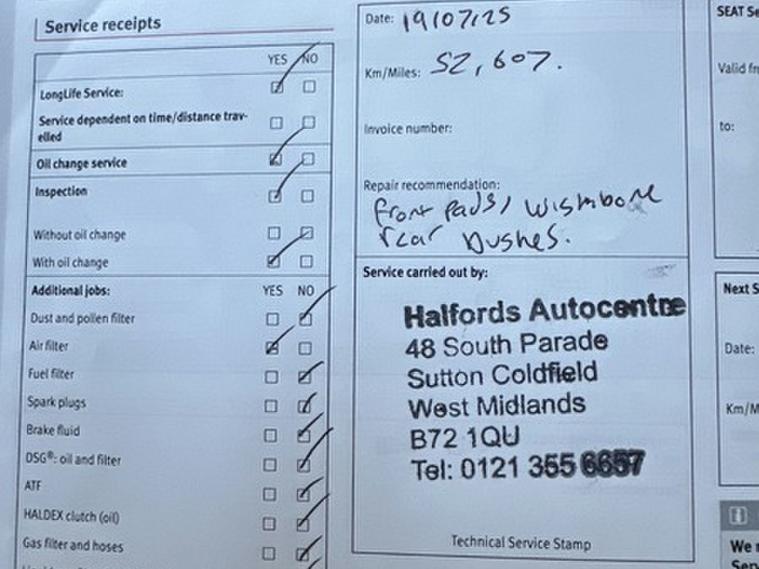 Service receipts
YES NO
LongLife Service:
Service dependent on time/distance trav-
elled
Oil change service
Inspection
Without oil change
With oil change
Additional jobs: YES NO
Dust and pollen filter
Air filter
Fuel filter
Spark plugs
Brake fluid
DSG®: oil and filter
ATF
HALDEX clutch (oil)
Gas filter and hoses
Date: 19/07/25
Km/Miles: 52,607.
Invoice number:
Repair recommendation:
front pads, wishbone
rear bushes.
Service carried out by:
Halfords Autocentre
48 South Parade
Sutton Coldfield
West Midlands
B72 1QU
Tel: 0121 355 6657
Technical Service Stamp
SEAT Se
Valid fr
to:
Next S
Date:
Km/M
We
Serv